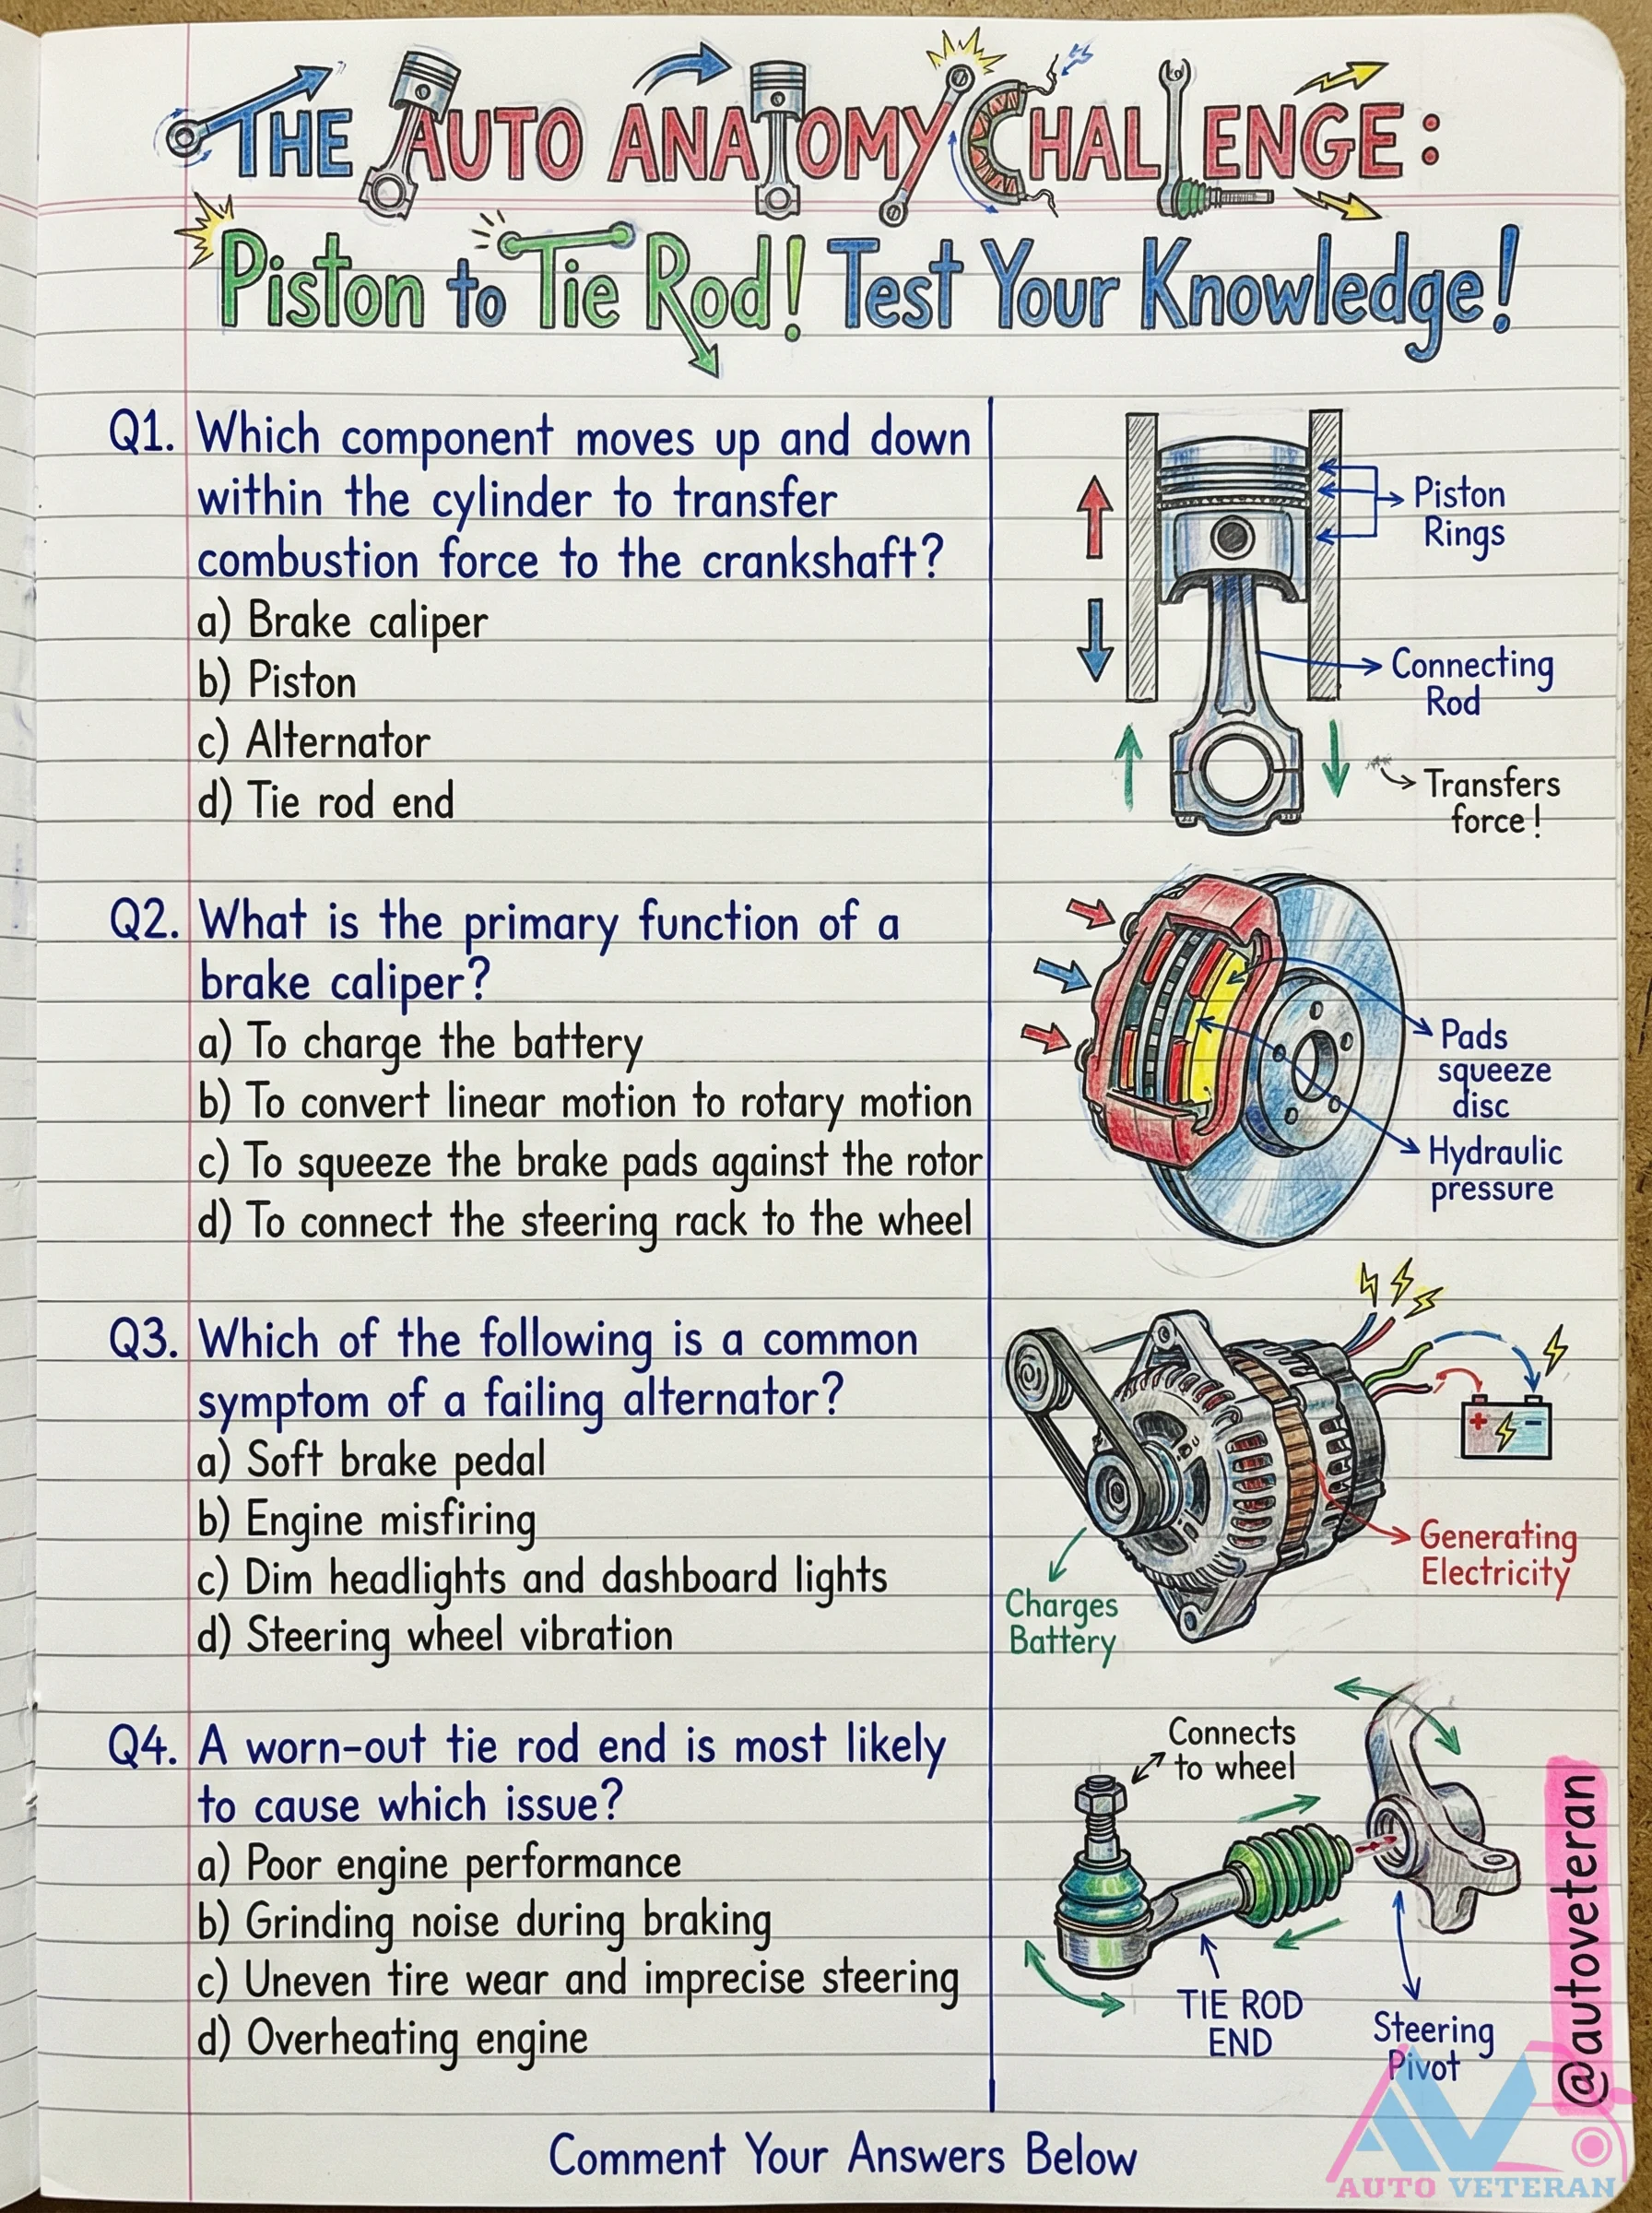 THE AUTO ANATOMY CHALLENGE:
Piston to Tie Rod! Test Your Knowledge!
Q1. Which component moves up and down
within the cylinder to transfer
combustion force to the crankshaft?
a) Brake caliper
b) Piston
c) Alternator
d) Tie rod end
Piston
Rings
Connecting
Rod
Transfers
force!
Q2. What is the primary function of a
brake caliper?
a) To charge the battery
b) To convert linear motion to rotary motion
c) To squeeze the brake pads against the rotor
d) To connect the steering rack to the wheel
Pads
squeeze
disc
Hydraulic
pressure
Q3. Which of the following is a common
symptom of a failing alternator?
a) Soft brake pedal
b) Engine misfiring
c) Dim headlights and dashboard lights
d) Steering wheel vibration
+ -
Generating
Electricity
Charges
Battery
Q4. A worn-out tie rod end is most likely
to cause which issue?
a) Poor engine performance
b) Grinding noise during braking
c) Uneven tire wear and imprecise steering
d) Overheating engine
Connects
to wheel
TIE ROD
END
Steering
Pivot
@autoveteran
Comment Your Answers Below
AV
AUTO VETERAN